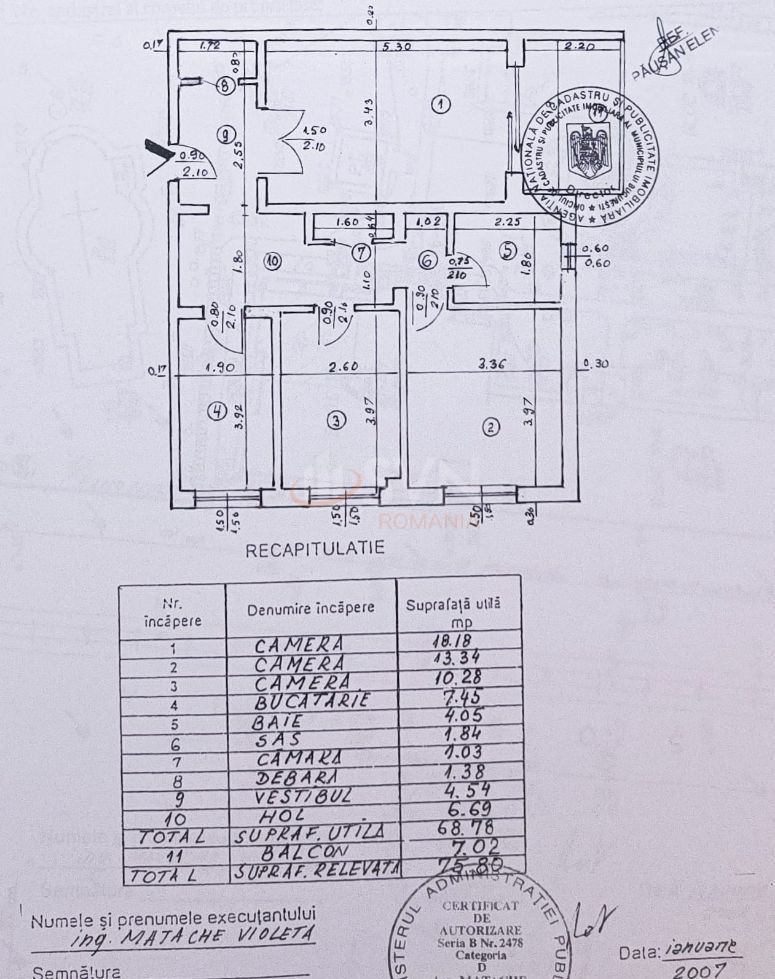 BEF.
PĂUSAN ELEN
0.20
0.17
1.72
5.30
2.20
0.80
8
1
11
3.43
9
1.50
2.10
0.90
2.10
2.55
1.60
0.64
1.02
2.25
10
7
6
0.75
2.10
5
0.60
0.60
1.80
1.10
1.80
0.80
2.10
0.90
2.10
0.90
2.10
0.17
1.90
2.60
3.36
0.30
4
3.92
3
3.97
2
3.97
1.50
1.50
1.50
1.50
1.50
0.30
ROMANIA
AGENȚIA NAȚIONALĂ DE CADASTRU ȘI PUBLICITATE IMOBILIARĂ
OFICIUL DE CADASTRU ȘI PUBLICITATE IMOBILIARĂ AL MUNICIPIULUI BUCUREȘTI
Director
RECAPITULATIE
Nr. încăpere Denumire încăpere Suprafață utilă mp
1 CAMERA 18.18
2 CAMERA 13.34
3 CAMERA 10.28
4 BUCATARIE 7.45
5 BAIE 4.05
6 SAS 1.84
7 CĂMARA 1.03
8 DEBARA 1.38
9 VESTIBUL 4.54
10 HOL 6.69
TOTAL SUPRAF. UTILĂ 68.78
11 BALCON 7.02
TOTAL SUPRAF. RELEVATĂ 75.80
Numele și prenumele executantului
ing. MATACHE VIOLETA
Semnătura
MINISTERUL ADMINISTRAȚIEI PUB
CERTIFICAT
DE
AUTORIZARE
Seria B Nr. 2478
Categoria
D
Data: ianuarie
2007